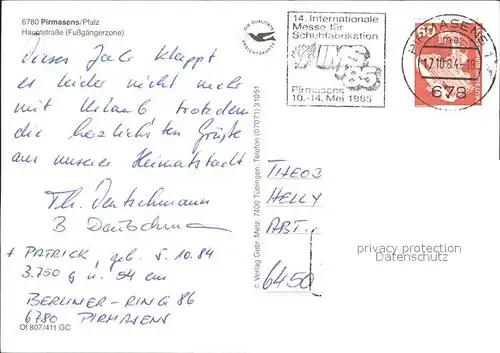 6780 Pirmasens/Pfalz
Hauptstraße (Fußgängerzone)
DIE QUALITÄTS
ANSICHTSKARTE
14. Internationale
Messe für
Schuhfabrikation
IMS
85
Pirmasens
10.-14. Mai 1985
60
PIRMASENS
ma
17.10.84-18
678
Dieses Jahr klappt
es leider nicht mehr
mit Urlaub, trotzdem
die herzlichsten Grüße
aus unserer Heimatstadt
Th. Deutschmann
B Deutschmann
+ PATRICK, geb. 5.10.84
3.750 g u. 54 cm
BERLINER-RING 86
6780 PIRMASENS
Of 807/411.GC
© Verlag Gebr. Metz, 7400 Tübingen, Telefon (07071) 31051
THEO &
HELLY
ABT.
6450
privacy protection
Datenschutz